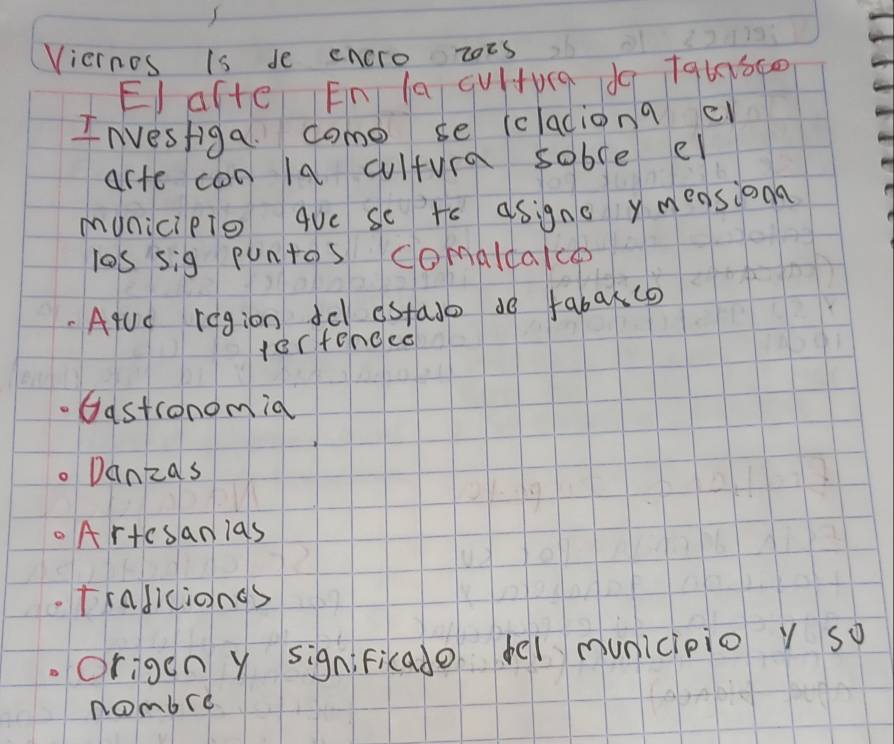 Viernes 15 de enero 2025
El arte En la cultura de Tabasco
Investiga. como se relaciona el
arte con la cultura sobre el
municipio que se te asigne y mensiona
los sig puntos Comalcalco
. Aque region del estado de tabasco
pertenece
• Gastronomia
• Danzas
• Artesanias
• Tradiciones
• Origen y significado del municipio y so
nombre